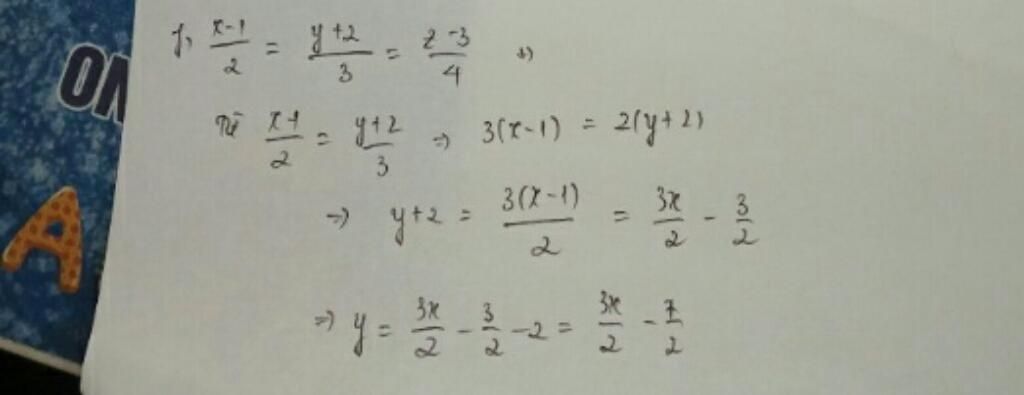 ON
A
1, (x-1)/2 = (y+2)/3 = (z-3)/4 =>
Từ (x-1)/2 = (y+2)/3 => 3(x-1) = 2(y+2)
=> y+2 = 3(x-1)/2 = 3x/2 - 3/2
=> y = 3x/2 - 3/2 - 2 = 3x/2 - 7/2